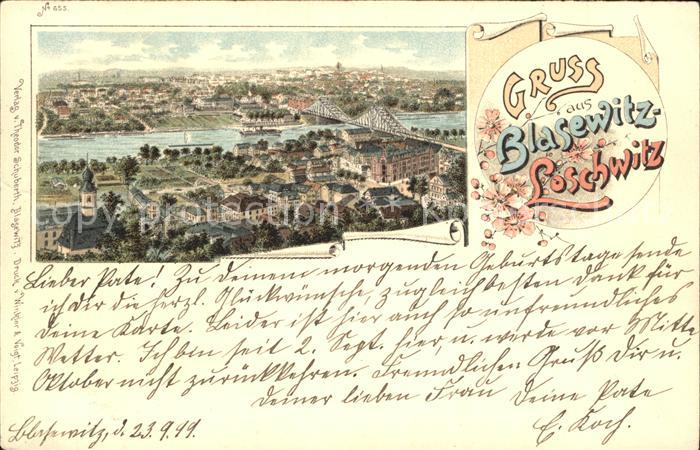 No 655.
GRUSS
aus
Blasewitz-
Loschwitz
Verlag v. Theodor Schuberth, Blasewitz. Druck v. Winkler & Voigt, Leipzig
Lieber Pate! Zu Deinem morgenden Geburtstage sende
ich Dir die herzl. Glückwünsche, zugleich besten Dank für
Deine Karte. Leider ist hier auch so unfreundliches
Wetter. Ich bin seit 2. Sept. hier, u. werde vor Mitte
Oktober nicht zurückkehren. Freundlichen Gruß Dir u.
Deiner lieben Frau Deine Pate
E. Koch.
Blasewitz, d. 23.9.99.